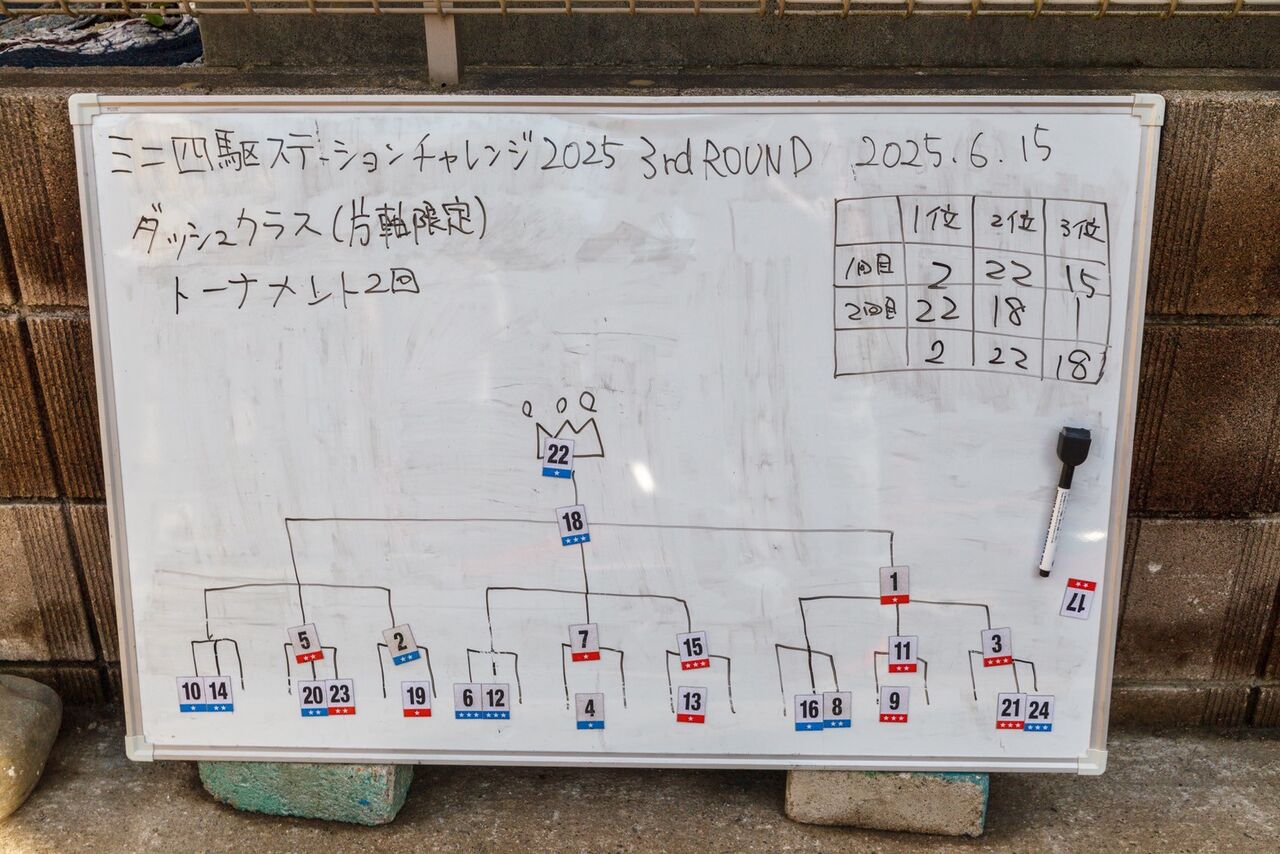 ミニ四駆ステーションチャレンジ2025 3rd ROUND 2025.6.15
ダッシュクラス(片軸限定)
トーナメント2回
1位 2位 3位
1回目 2 22 15
2回目 22 18 1
2 22 18
22
18
1
5 2 7 15 11 3
10 14 20 23 19 6 12 4 13 16 8 9 21 24
17